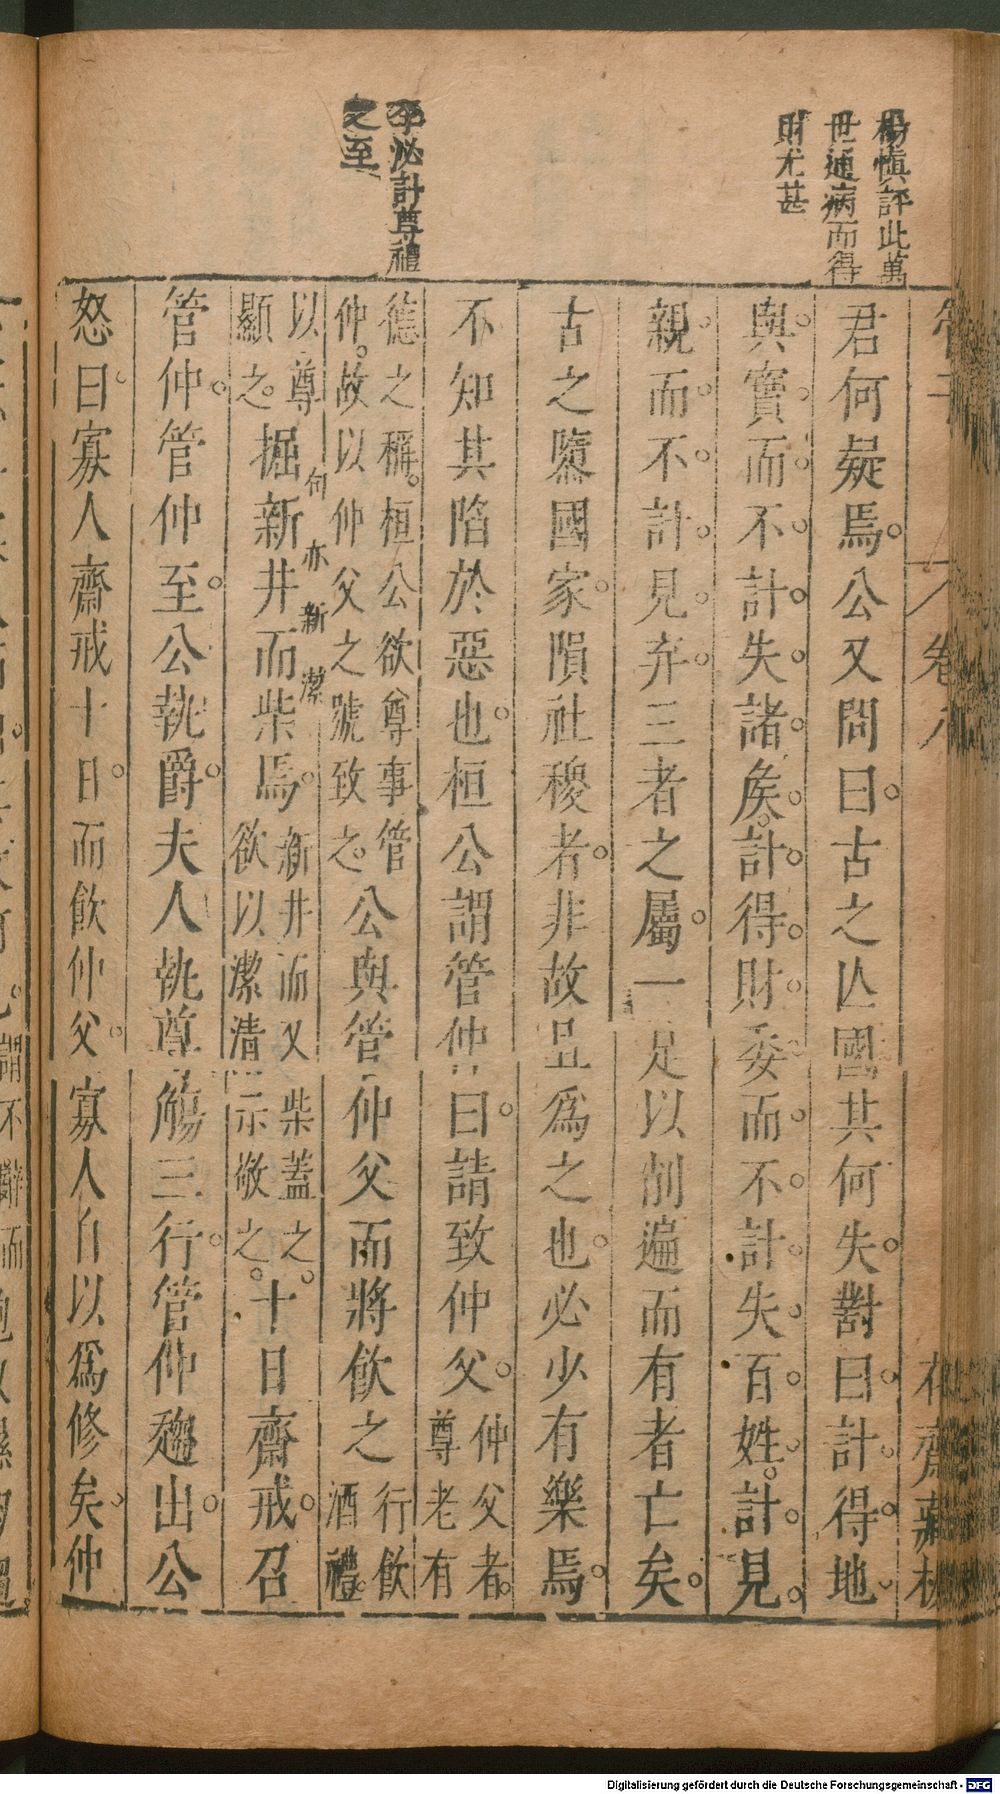 楊慎評此萬
世通病而得
財尤甚
李泌計尊禮
之至
管子
卷八
花齋藏板
君何疑焉公又問曰古之亾國其何失對曰計得地
與寶而不計失諸矦計得財委而不計失百姓計見
親而不計見弃三者之屬一足以削遍而有者亡矣
古之隳國家隕社稷者非故且為之也必少有樂焉
不知其陷於惡也桓公謂管仲曰請致仲父仲父者
尊老有
德之稱桓公欲尊事管
仲故以仲父之號致之公與管仲父而將飲之行飲
酒禮
以尊
顯之掘新井而柴焉新井而又柴蓋之
欲以潔清示敬之十日齋戒召
句亦新潔
管仲管仲至公執爵夫人執尊觴三行管仲趨出公
怒曰寡人齋戒十日而飲仲父寡人自以為修矣仲
Digitalisierung gefördert durch die Deutsche Forschungsgemeinschaft - DFG